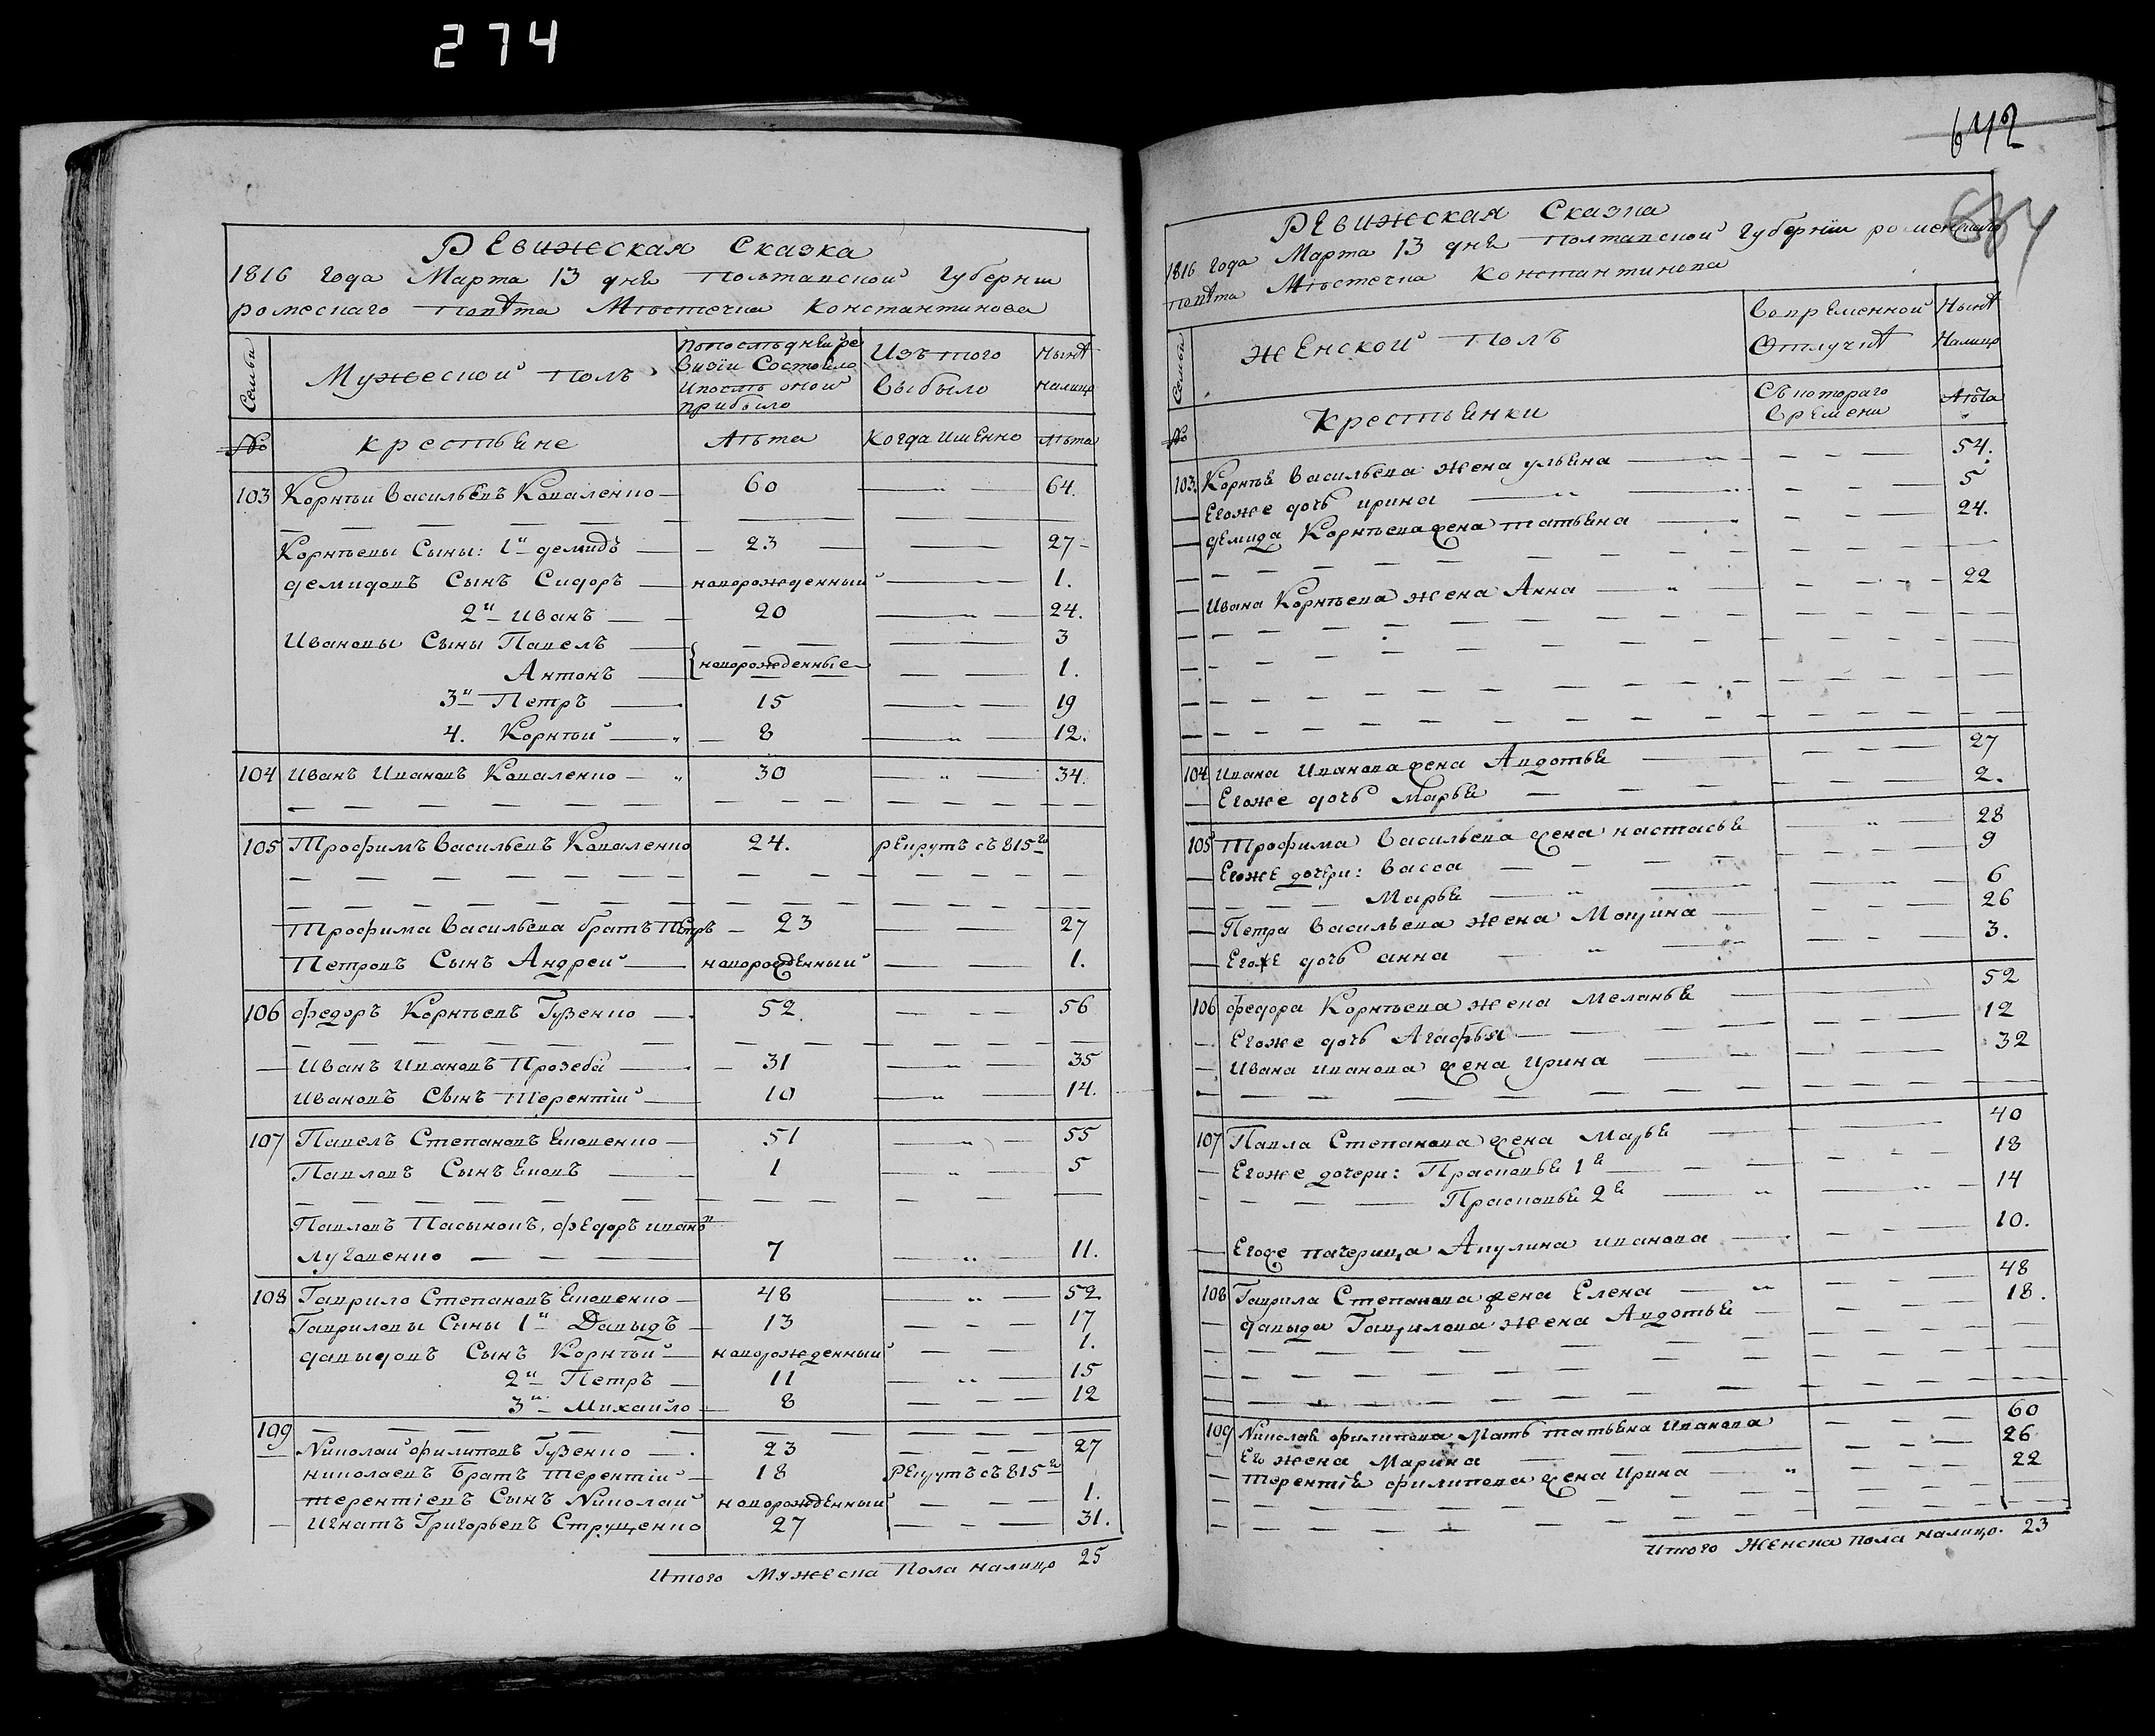 274
Ревижеская Сказка
1816 года Марта 13 дня Полтавской Губернии
роменскаго повѣта Мѣстечка Константинова
Семьи
Мужеской полъ
По послѣдней ре
визіи Состояло
и послѣ оной
прибыло
Изъ того
выбыло
Нынѣ
налицо
№
крестьяне
Лѣта
Когда имянно
лѣта
103 Корнѣй Васильевъ Коваленко 60 64.
Корнѣевы Сыны: 1й демидъ 23 27
демидовъ Сынъ Сидоръ новорожденный 1.
2й иванъ 20 24.
Ивановы Сыны Павелъ 3
Антонъ новорожденные 1.
3й Петръ 15 19
4. Корнѣй 8 12.
104 Иванъ Ивановъ Коваленко 30 34.
105 Трофимъ Васильевъ Коваленко 24. рекрутъ съ 815го
Трофима Васильева братъ Петръ 23 27
Петровъ Сынъ Андрей новорожденный 1.
106 федоръ Корнѣевъ Гузенко 52. 56
Иванъ Ивановъ Прозеба 31 35
Ивановъ Сынъ Терентій 10 14.
107 Павелъ Степановъ Яковенко 51 55
Павловъ Сынъ Яковъ 1 5
Павловъ Пасынокъ, федоръ иванов
Луговенко 7 11.
108 Гаврило Степановъ Яковенко 48 52
Гавриловы Сыны 1й Давыдъ 13 17
давыдовъ Сынъ Корнѣй новорожденный 1.
2й Петръ 11 15
3й Михайло 8 12
109
Николай филиповъ Гузенко 23 27
николаевъ братъ терентій 18 Рекрутъ съ 815го
терентіевъ Сынъ Николай новорожденный 1.
Игнатъ Григорьевъ Струценко 27 31.
Итого Мужеска Пола налицо 25
642
Ревижеская Сказка
1816 года Марта 13 дня Полтавской Губерніи роменскаго
повѣта Мѣстечка Константинова
Семьи
женской полъ
Во временной
Отлучкѣ
Нынѣ
Налицо
№
крестьянки
Съ котораго
времени
Лѣта
103. Корнѣя Васильева жена ульяна 54.
Егоже дочь ирина 5
демида Корнѣева жена татьяна 24.
Ивана Корнѣева жена Анна 22
104 Ивана Иванова жена Авдотья 27
Егоже дочь марья 2.
105 Трофима Васильева жена настасья 28
Егоже дочери: васса 9
Марья 6
Петра Васильева жена Мотрина 26
Егоже дочь анна 3.
106 федора Корнѣева жена меланья 52
Егоже дочь Агафья 12
Ивана иванова жена Ирина 32
107 Павла Степанова жена Марья 40
Егоже дочери: Прасковья 1я 18
Прасковья 2я 14
Егоже падчерица Акулина иванова 10.
108 Гаврила Степанова жена Елена 48
давыда Гаврилова жена Авдотья 18.
109 Николая филипова мать татьяна Иванова 60
Ево жена Марина 26
терентія филипова жена Ирина 22
Итого Женска пола налицо. 23